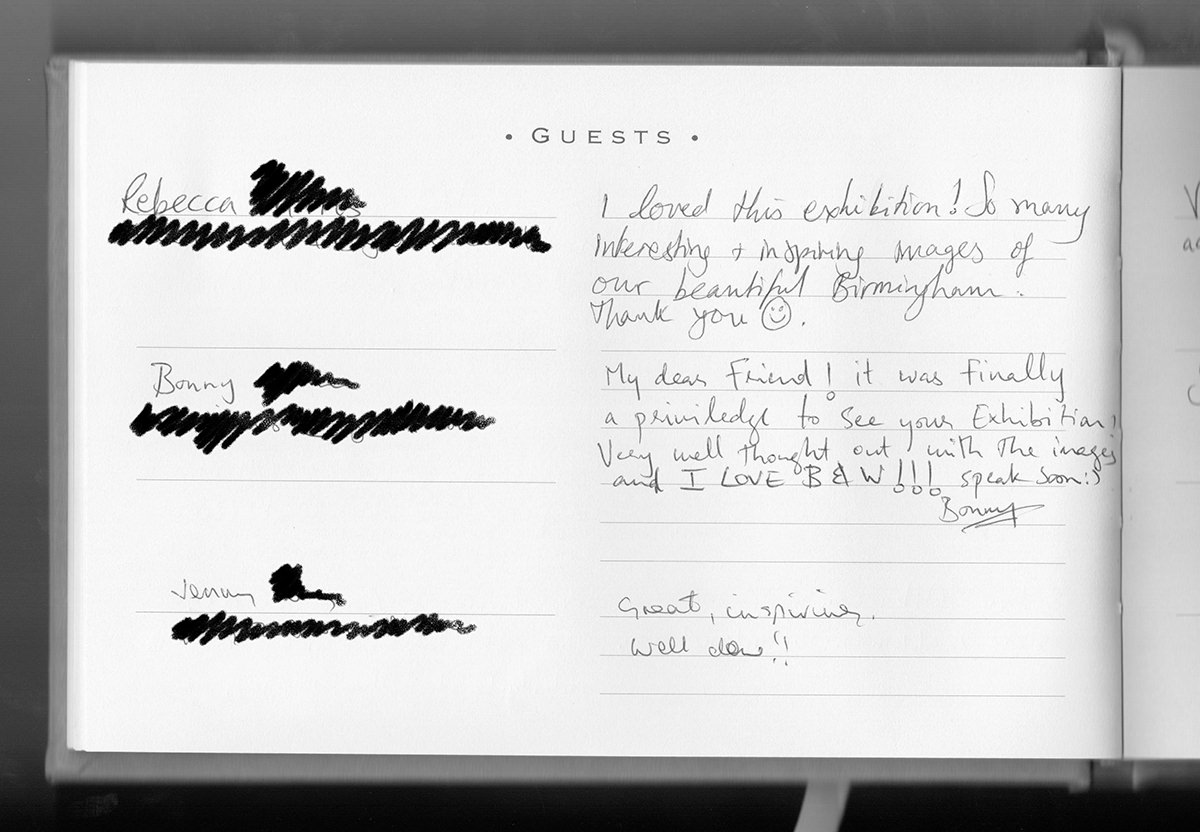 • GUESTS •
Rebecca
I loved this exhibition! So many
interesting + inspiring images of
our beautiful Birmingham.
Thank you ☺.
Bonny
My dear Friend! it was finally
a priviledge to see your Exhibition!
Very well thought out, with the images
and I LOVE B & W!!! speak soon :)
Bonny
Jenny
Great, inspiring.
Well done!!